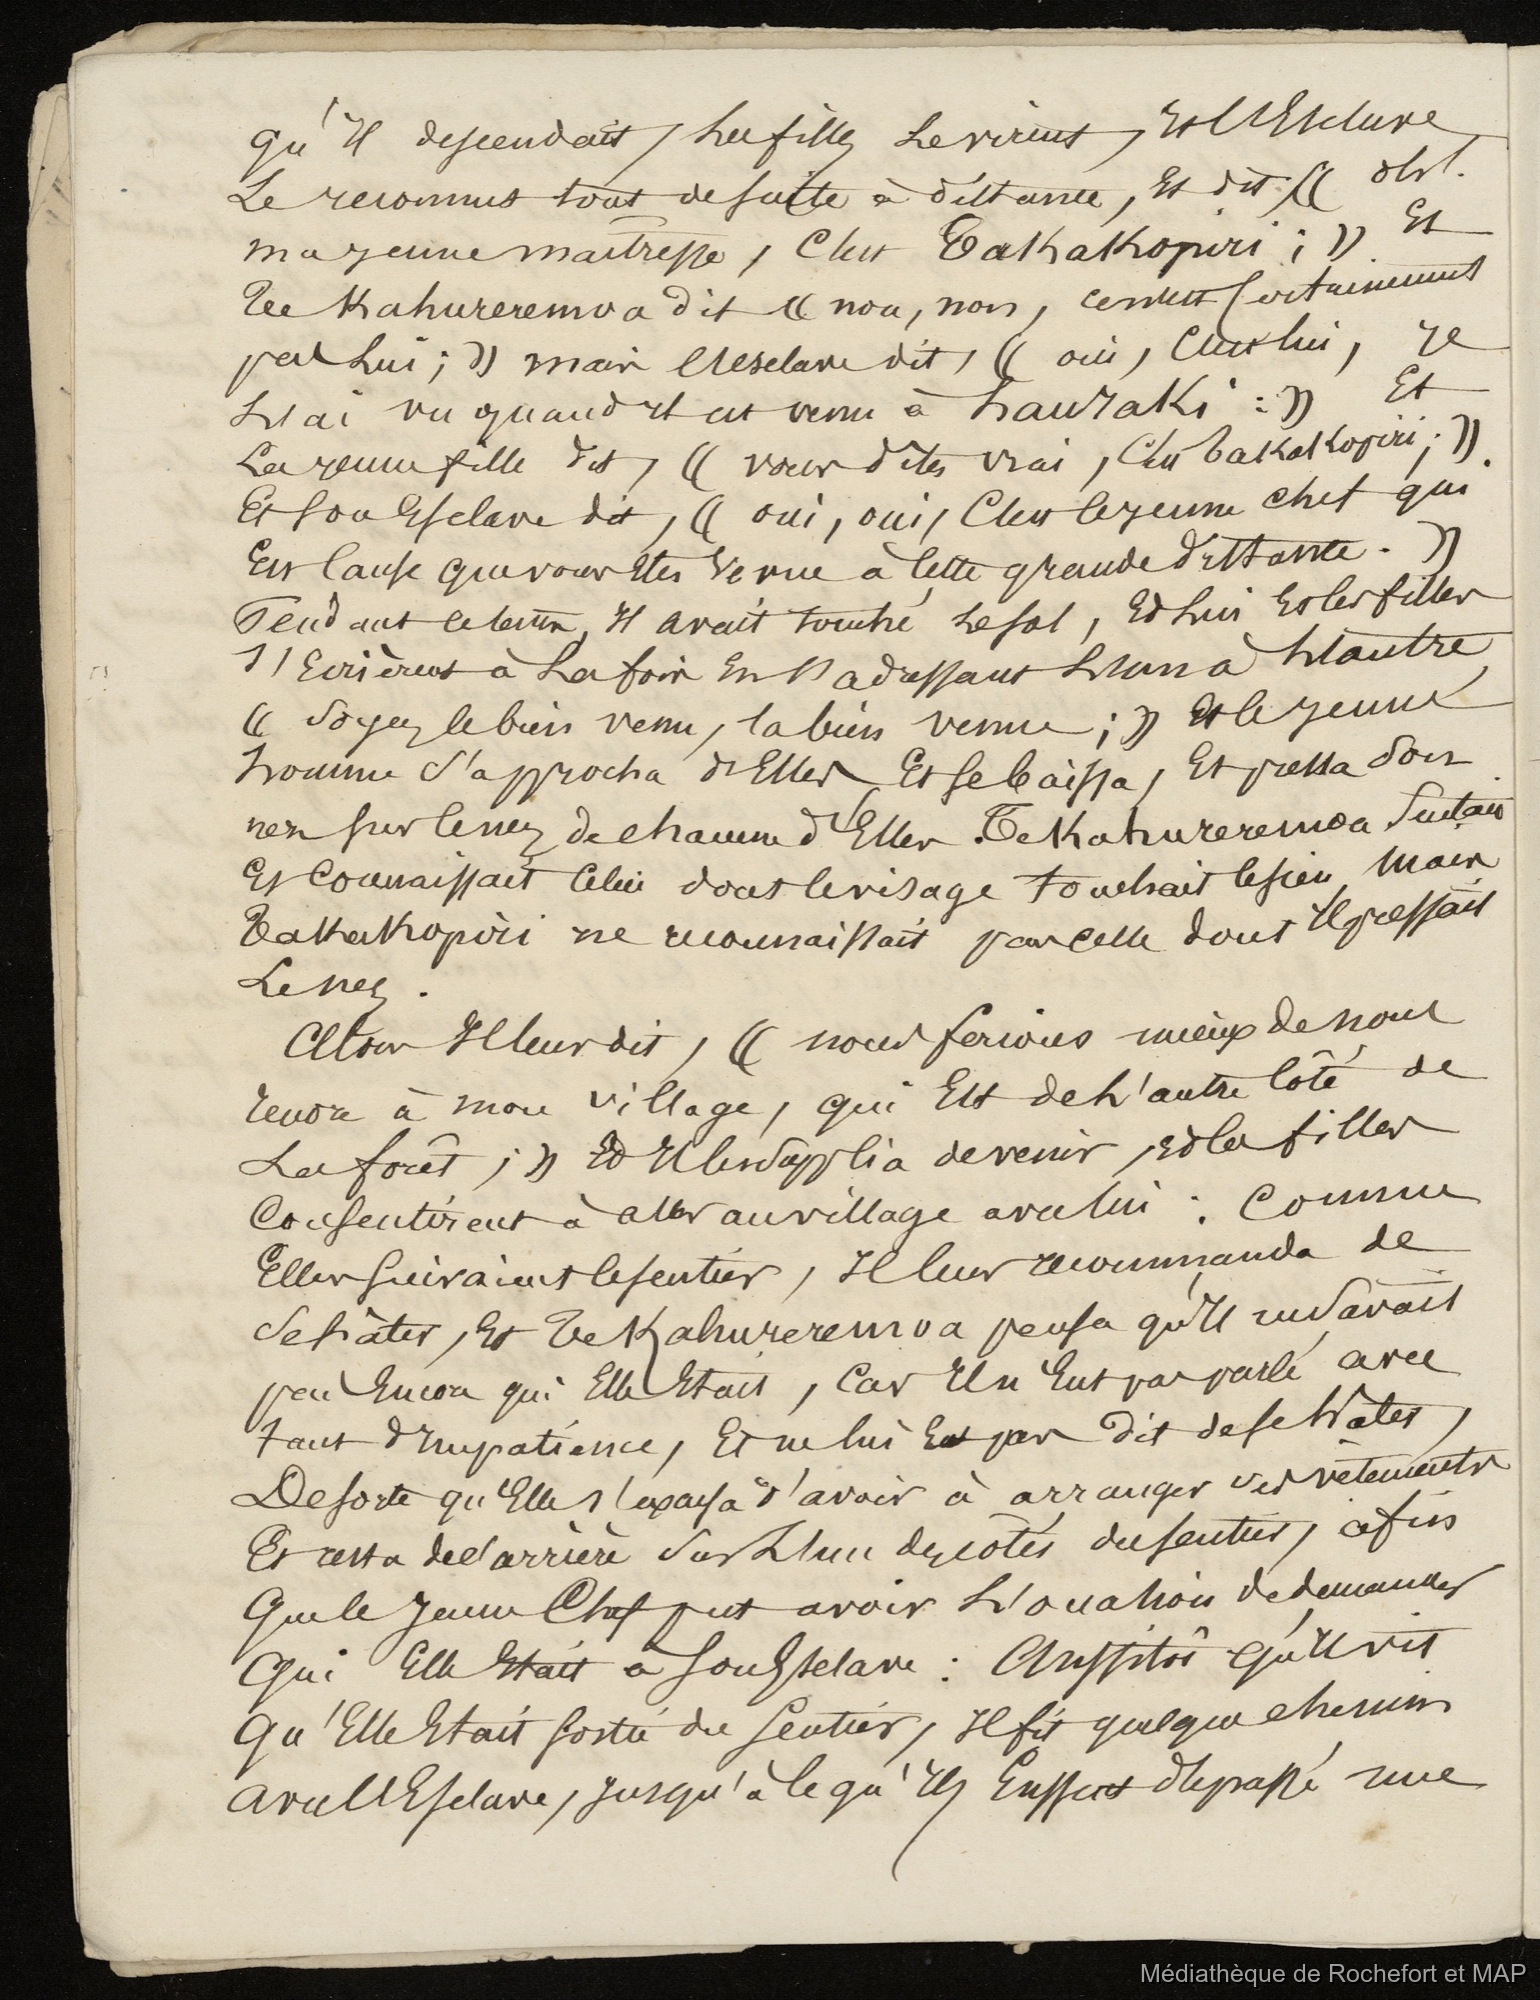 qu'Il descendait, les filles le virent, Et l'Esclave
Le reconnut tout de suite à distance, Et dit (( oh!
ma jeune maîtresse, C'est Takakopiri ; )) Et
Te Kahureremoa dit (( non, non, ce n'est Certainement
pas Lui ; )) mais l'Esclave dit, (( oui, C'est lui, Je
L'ai vu quand Il est venu à hauraki : )) Et
La jeune fille dit, (( vous dites vrai, C'est Takakopiri ; )).
Et Son Esclave dit, (( oui, oui, C'est le jeune chef qui
Est Cause que vous Etes Venue à Cette grande distance. ))
Pendant ce temps, Il avait touché Le sol, Et Lui Et les filles
s'Ecrièrent à La fois En s'adressant L'un à L'autre,
(( Soyez le bien venu, la bien venue ; )) Et le jeune
homme s'approcha d'Elles Et se baissa, Et pressa son
nez sur le nez de chacune d'Elles. Te Kahureremoa Sentait
Et Connaissait Celui dont le visage touchait le sien, Mais
Takakopiri ne reconnaissait pas celle dont Il pressait
Le nez.
Alors Il leur dit, (( nous ferions mieux de nous
rendre à mon village, qui Est de L'autre Côté de
La forêt ; )) Et Il les supplia de venir, Et les filles
Consentirent à aller au village avec lui : Comme
Elles Suivaient le sentier, Il leur recommanda de
Se hâter, Et Te Kahureremoa pensa qu'Il ne savait
pas Encore qui Elle Etait, Car Il n'Eut pas parlé avec
tant d'Impatience, Et ne lui Eut pas dit de se hâter,
De sorte qu'Elle s'excusa d'avoir à arranger ses vêtements
Et resta de l'arrière sur L'un des côtés du sentier, afin
Que le Jeune Chef put avoir L'occasion de demander
Qui Elle Etait à Son Esclave : Aussitôt qu'Il vit
Qu'Elle Etait Sortie du Sentier, Il fit quelque chemin
avec l'Esclave, Jusqu'à Ce qu'Ils Eussent dépassé une
Médiathèque de Rochefort et MAP